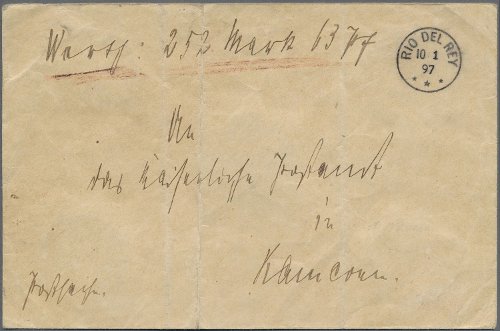 Werth: 252 Mark 63 Pf
RIO DEL REY
10 1
97
* * *
An
das Kaiserliche Postamt
in
Kamerun.
Postsache.